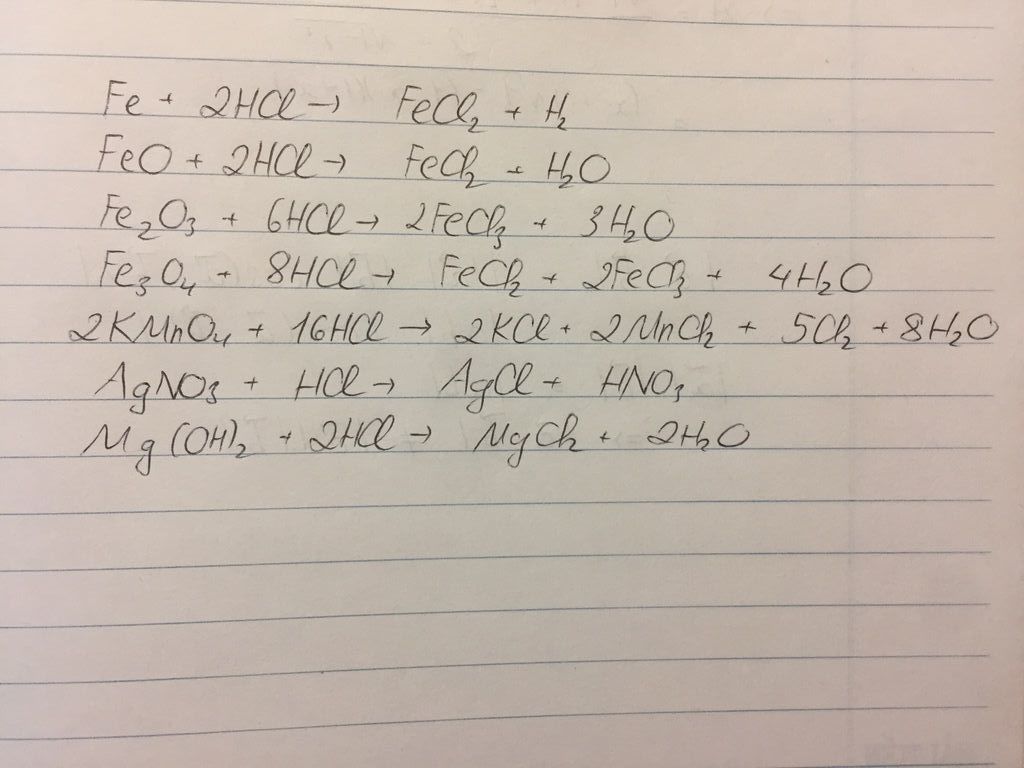 Fe + 2HCl → FeCl₂ + H₂
FeO + 2HCl → FeCl₂ + H₂O
Fe₂O₃ + 6HCl → 2FeCl₃ + 3H₂O
Fe₃O₄ + 8HCl → FeCl₂ + 2FeCl₃ + 4H₂O
2KMnO₄ + 16HCl → 2KCl + 2MnCl₂ + 5Cl₂ + 8H₂O
AgNO₃ + HCl → AgCl + HNO₃
Mg(OH)₂ + 2HCl → MgCl₂ + 2H₂O